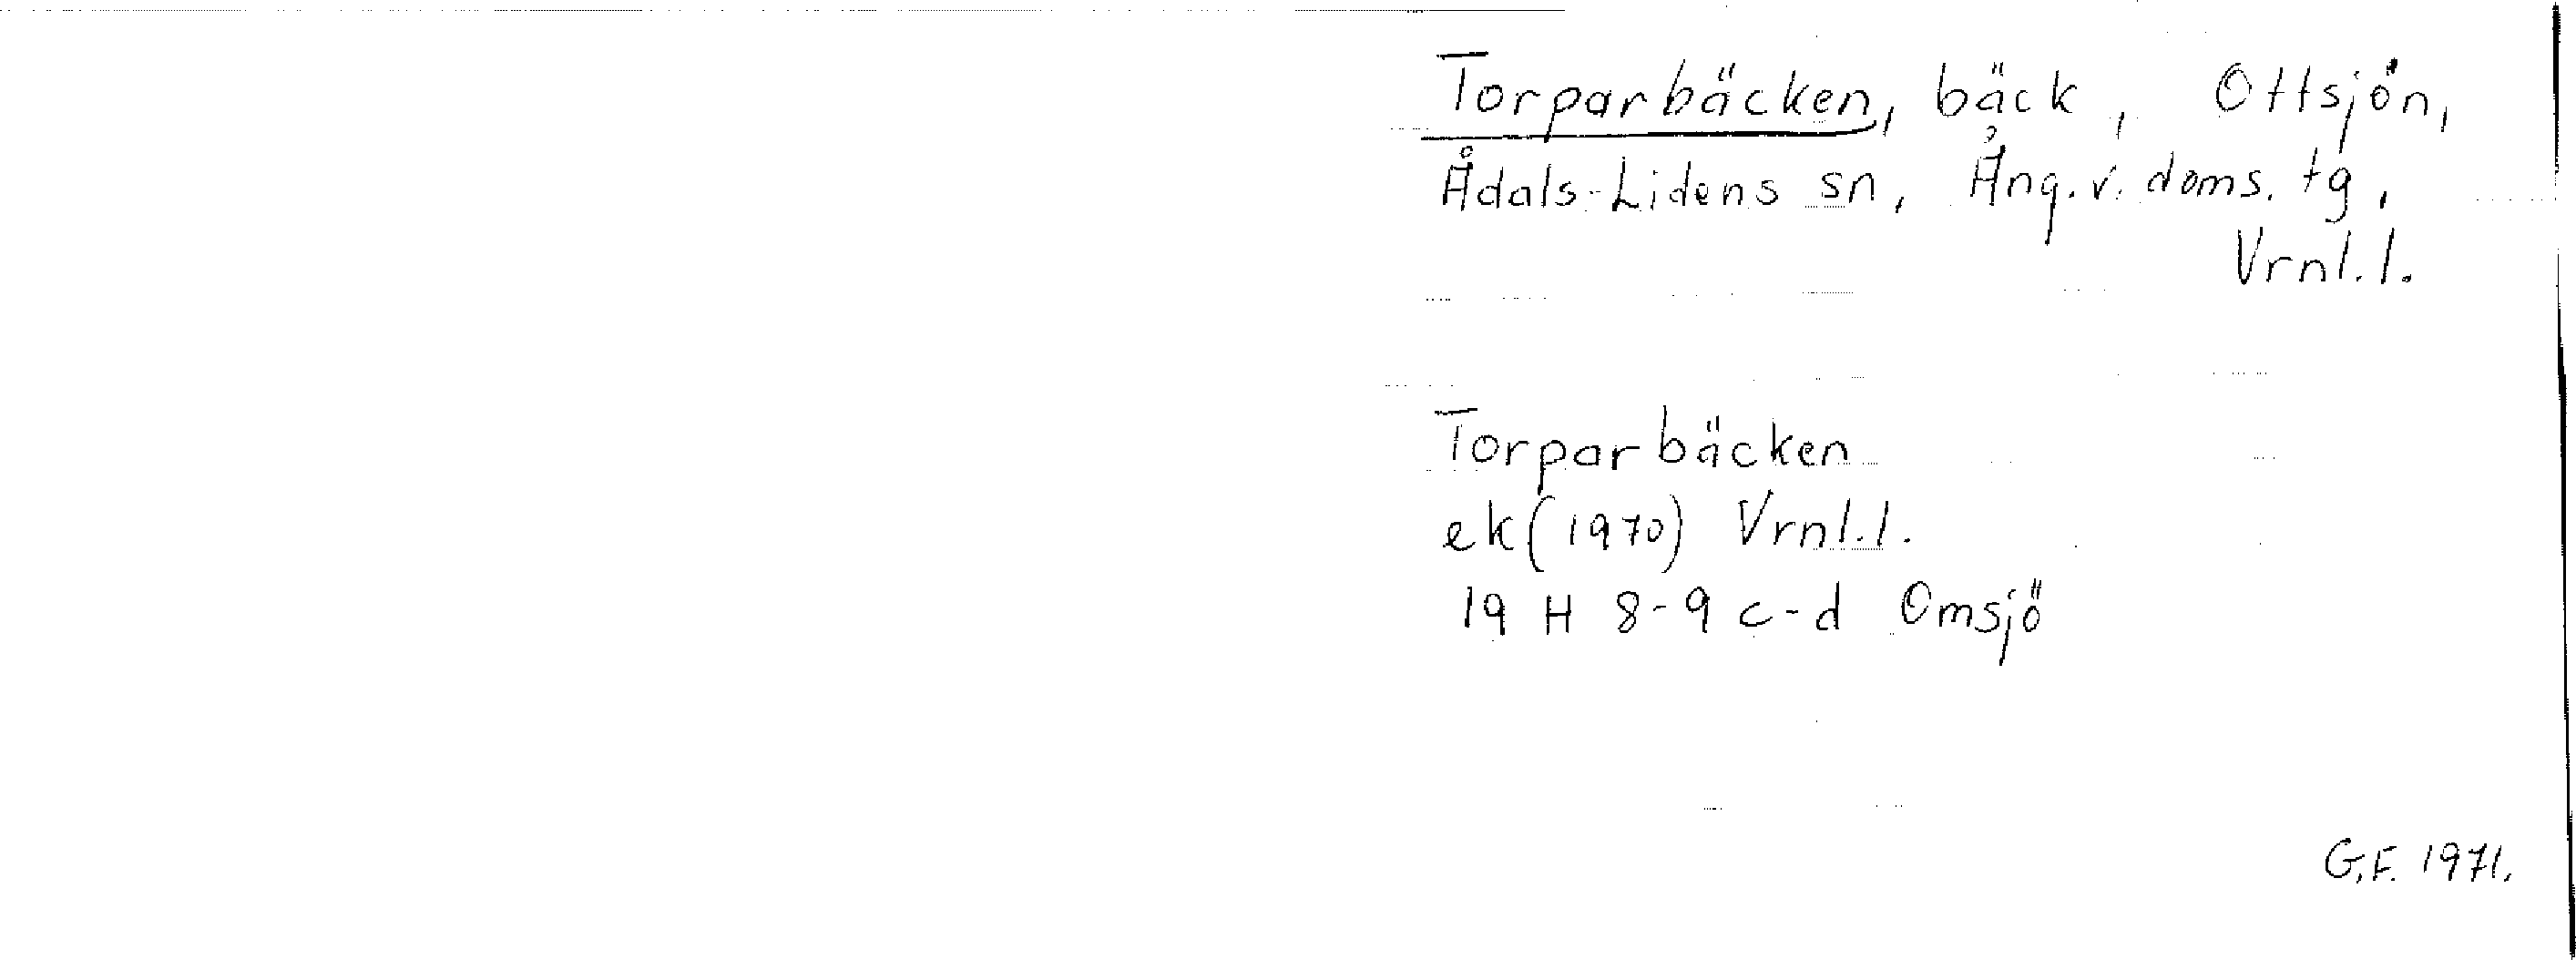 Torparbäcken, bäck, Ottsjön,
Ådals-Lidens sn, Ång. v. doms. tg,
Vrnl. l.
Torparbäcken
ek (1970) Vrnl. l.
19 H 8-9 c-d Omsjö
G.F. 1971.